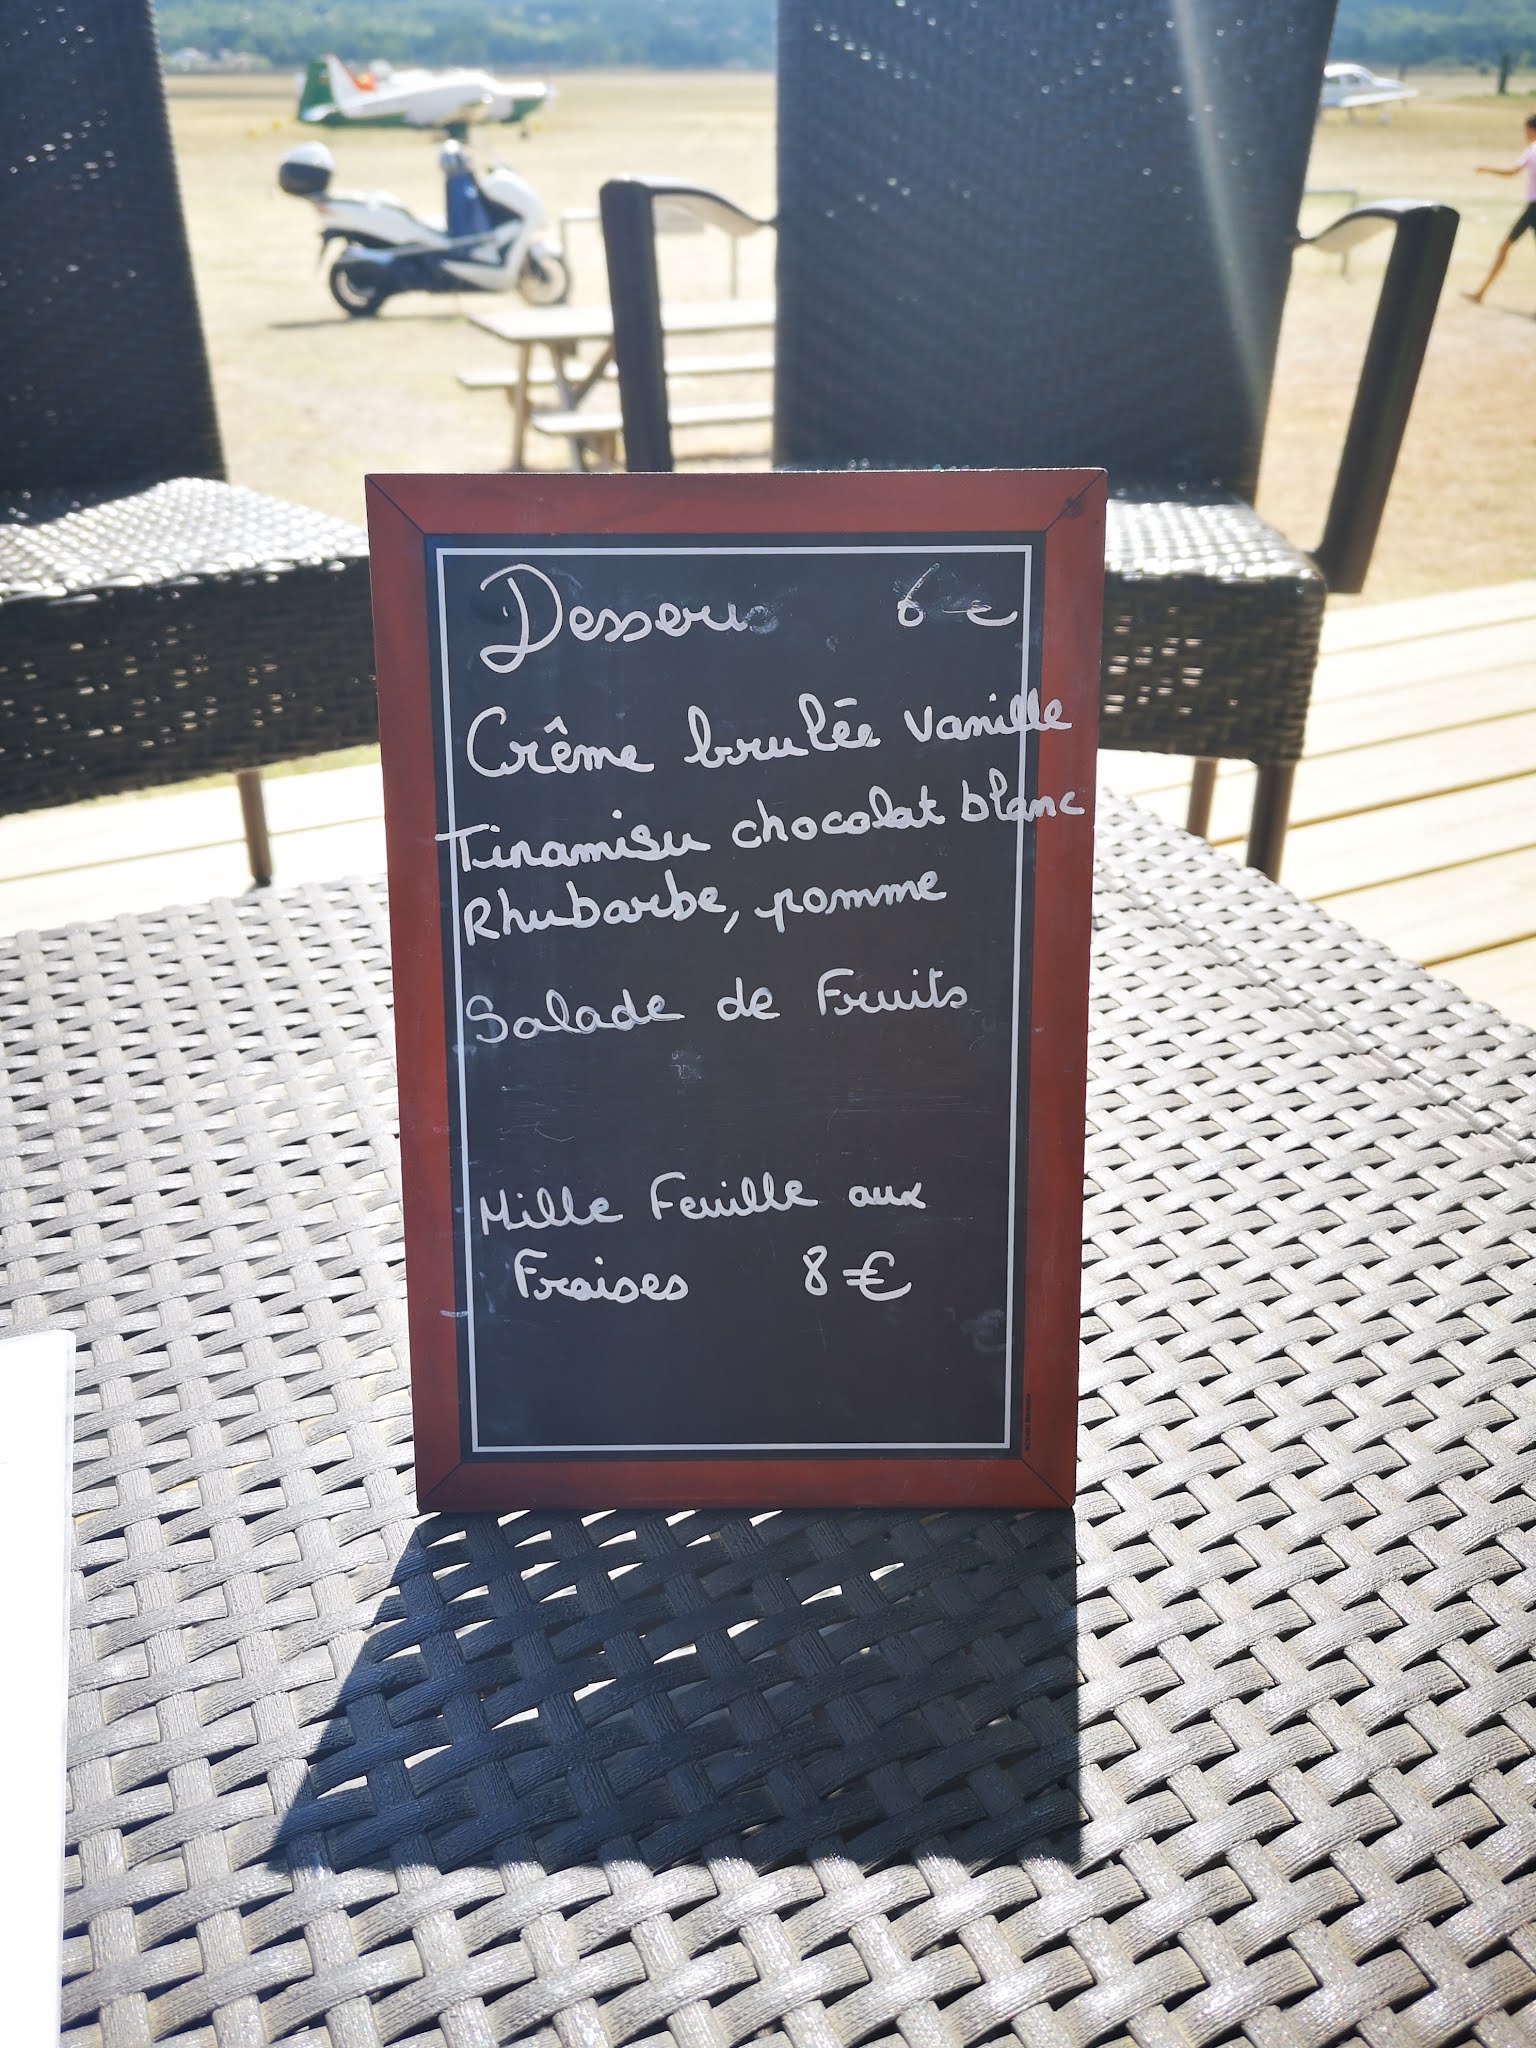 Desserts 6 €
Crême brulée vanille
Tiramisu chocolat blanc
Rhubarbe, pomme
Salade de Fruits
Mille Feuille aux
Fraises 8€